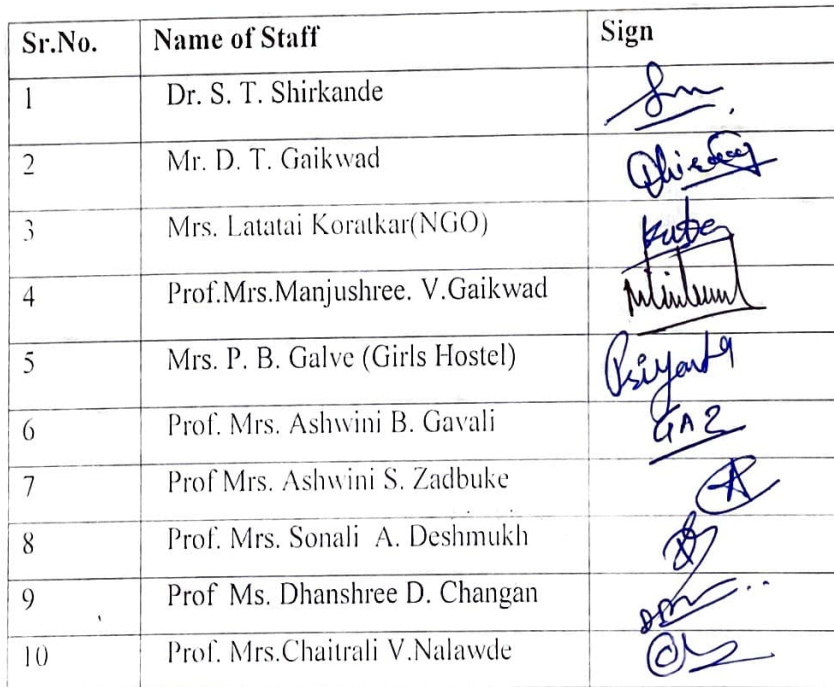 Sr.No. Name of Staff Sign
1 Dr. S. T. Shirkande
2 Mr. D. T. Gaikwad
3 Mrs. Latatai Koratkar(NGO)
4 Prof.Mrs.Manjushree. V.Gaikwad
5 Mrs. P. B. Galve (Girls Hostel)
6 Prof. Mrs. Ashwini B. Gavali
7 Prof Mrs. Ashwini S. Zadbuke
8 Prof. Mrs. Sonali A. Deshmukh
9 Prof Ms. Dhanshree D. Changan
10 Prof. Mrs.Chaitrali V.Nalawde